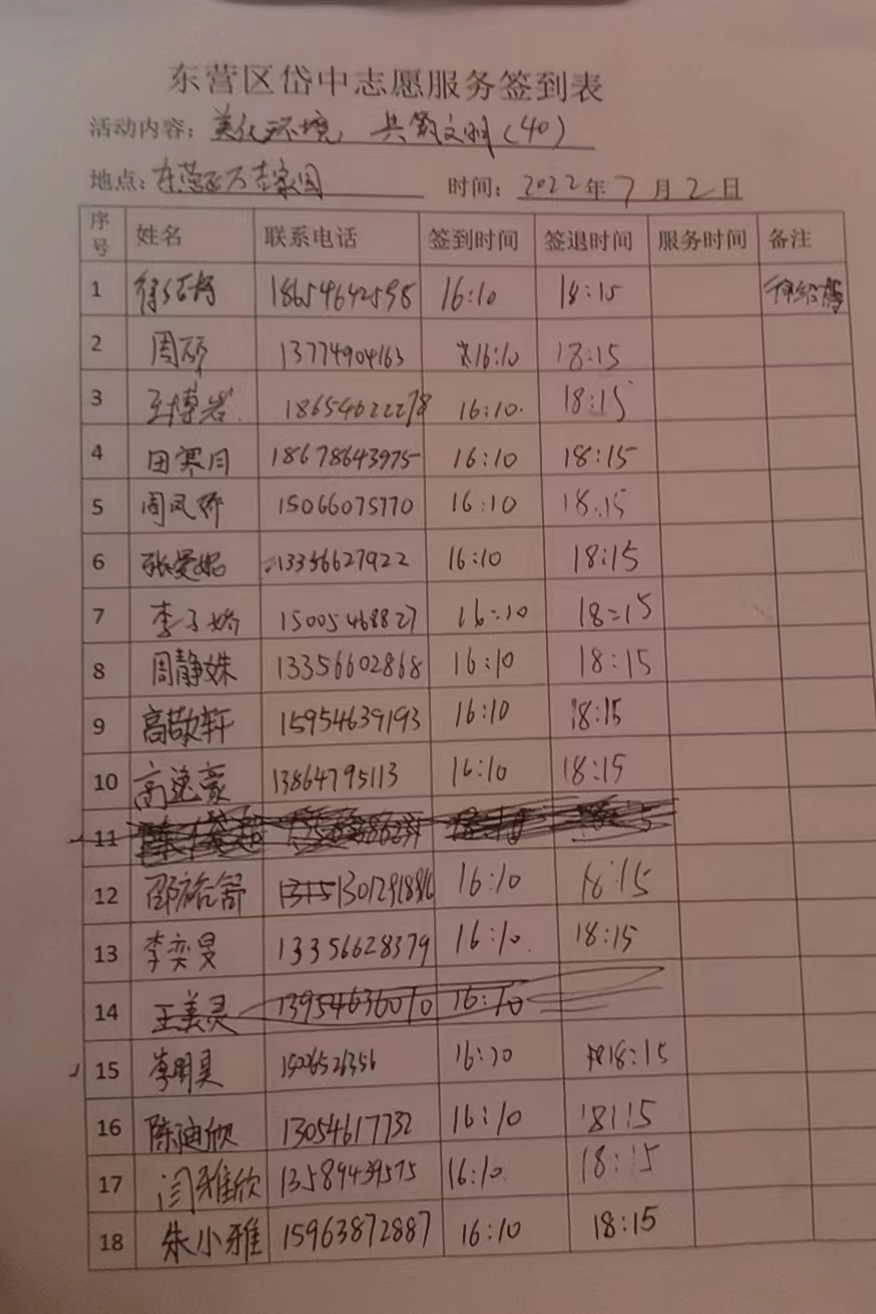 东营区岱中志愿服务签到表
活动内容: 美化环境, 共筑文明(40)
地点: 东营区万吉家园 时间: 2022年7月2日
序号 姓名 联系电话 签到时间 签退时间 服务时间 备注
1 18654642598 16:10 18:15
2 周硕 13774904163 16:10 18:15
3 王博岩 18654622278 16:10. 18:15
4 田寒月 18678643975 16:10 18:15
5 周凤娇 15066075770 16:10 18:15
6 张曼妮 13356627922 16:10 18:15
7 李子娇 15005468827 16:10 18:15
8 周静姝 13356602868 16:10 18:15
9 高敬轩 15954639193 16:10 18:15
10 高逸豪 13864795113 16:10 18:15
11
12 邵裕舒 16:10 18:15
13 李奕旻 13356628379 16:10. 18:15
14 王美灵 13954636070 16:10
15 李明昊 1506526356 16:10 18:15
16 陈迪欣 13054617732 16:10 18:15
17 闫雅欣 13589439575 16:10. 18:15
18 朱小雅 15963872887 16:10 18:15